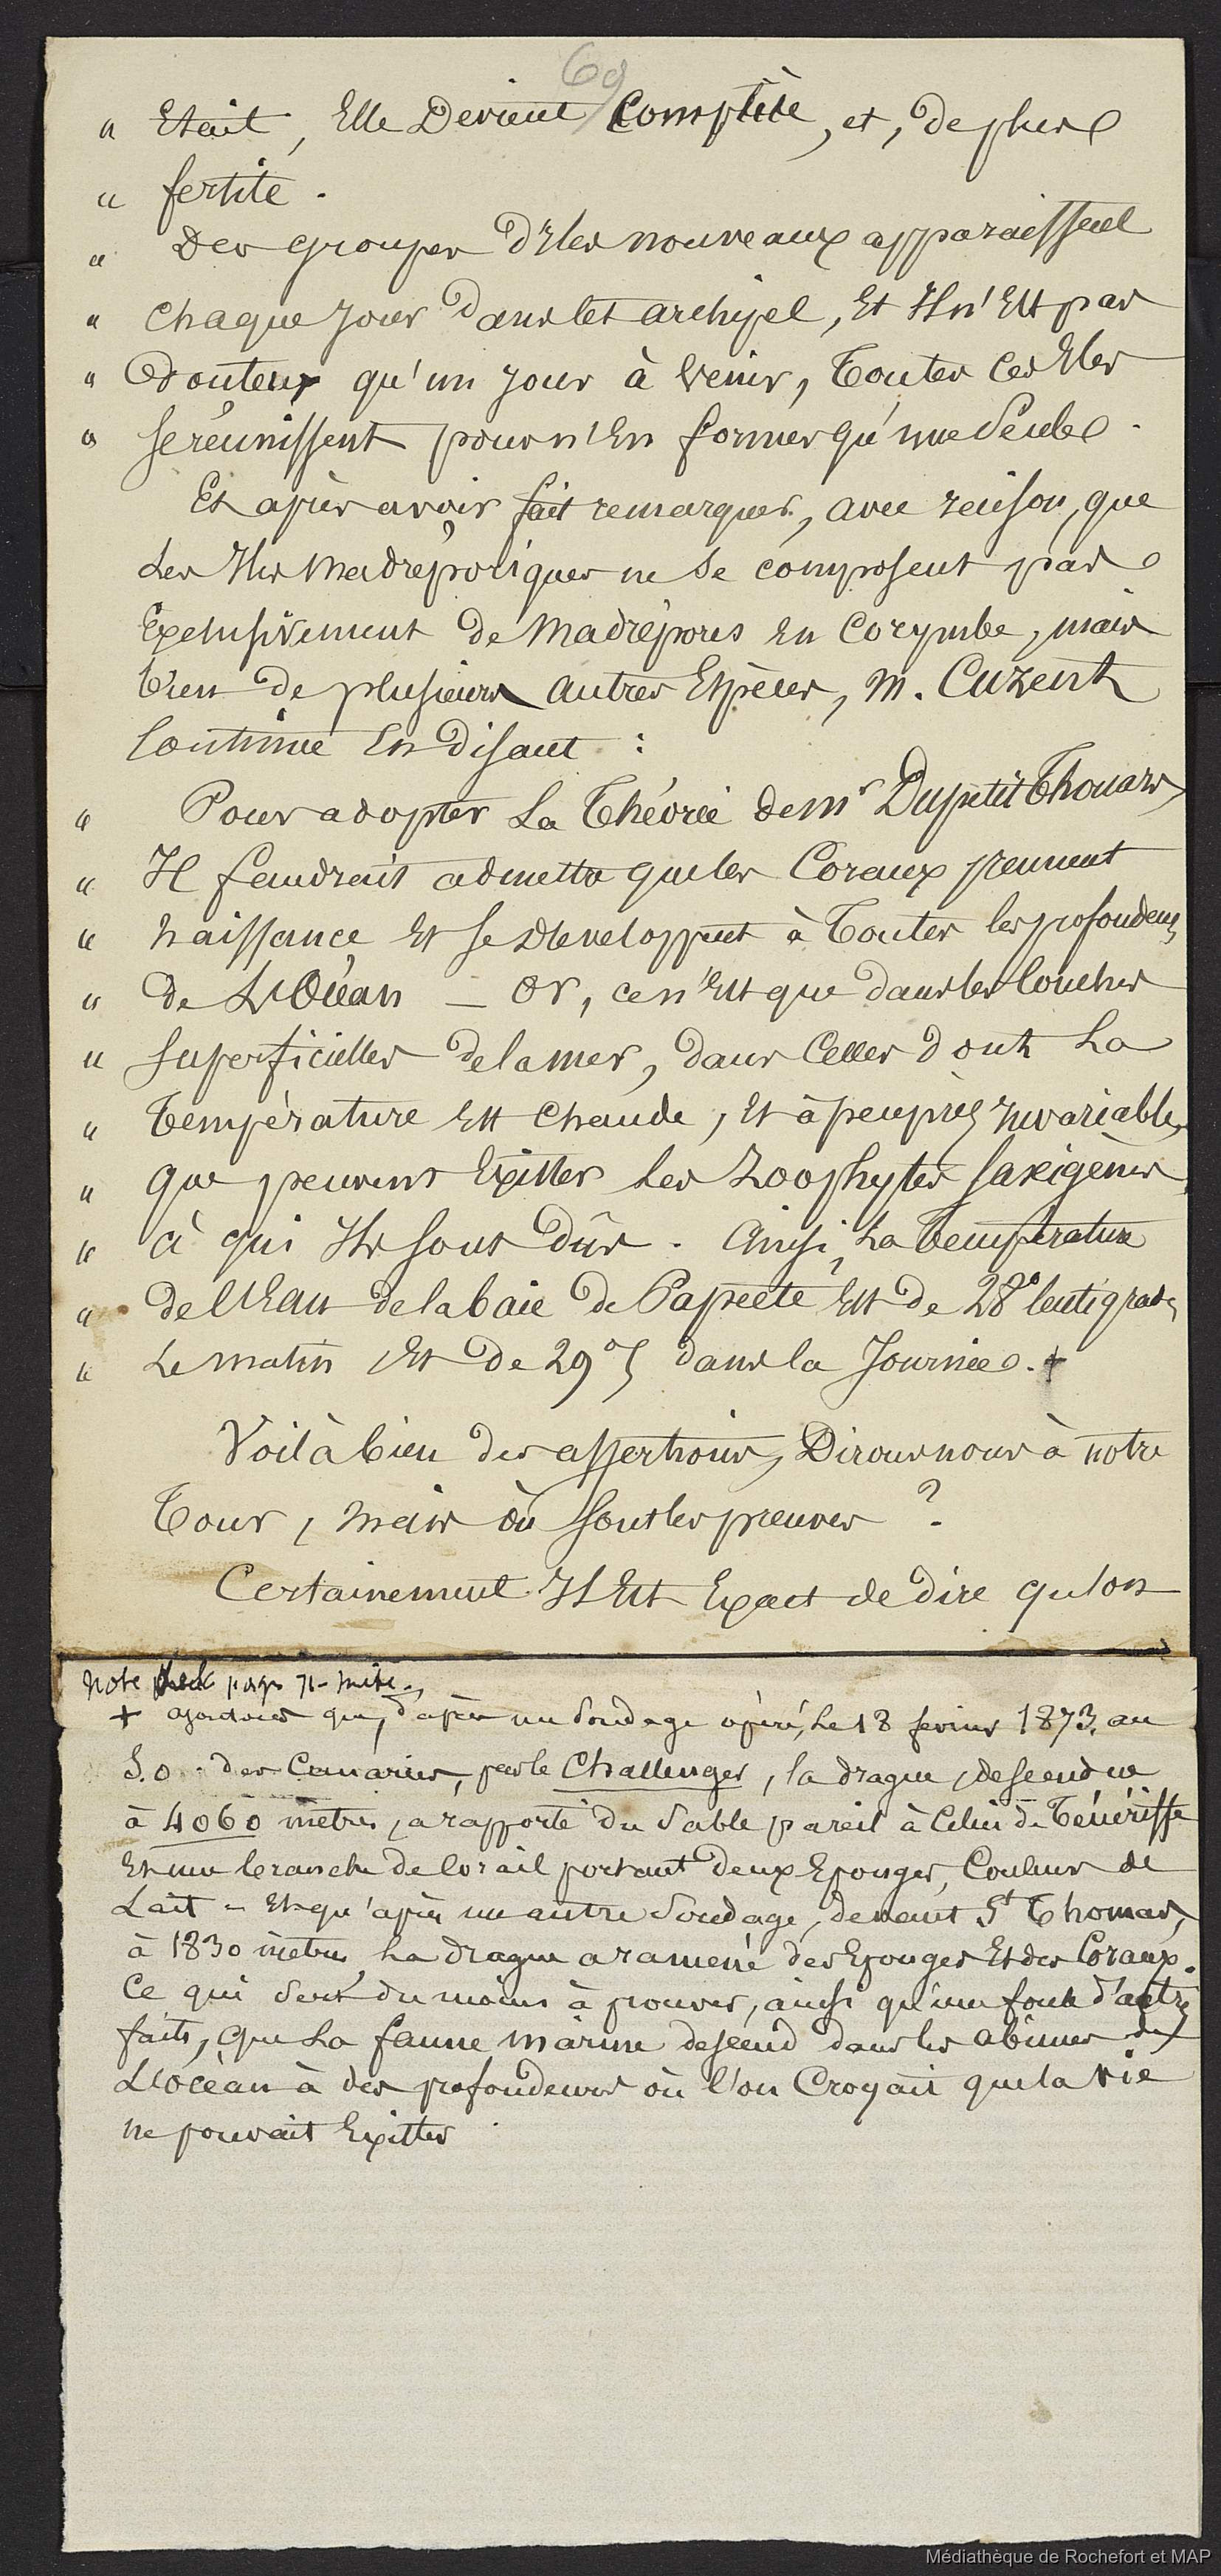 69
" Etait, Elle Devient Complète, et, de plus
" fertile.
" Des groupes d'Iles nouveaux apparaissent
" chaque Jour dans cet archipel, Et Il n'Est pas
" douteux qu'un jour à venir, Toutes ces Iles
" se réunissent pour n'En former qu'une Seule.
Et après avoir fait remarquer, avec raison, que
Les Iles Madréporiques ne se composent pas
Exclusivement de Madrépores en Corymbe, mais
bien de plusieurs autres Espèces, M. Cuzent
Continue En disant :
" Pour adopter La Théorie de Mr Dupetit Thouars,
" Il faudrait admettre que les Coraux prennent
" naissance Et se développent à Toutes les profondeurs
" de L'Océan — Or, ce n'Est que dans les Couches
" superficielles de la mer, dans Celles dont La
" Température Est chaude, Et à peu près Invariable,
" que peuvent Exister Les Zoophytes Saxigènes
" à qui Ils sont Dûs. Ainsi, La Température
" de l'Eau de la baie de Papeete Est de 28° Centigrades
" Le matin Et de 29°5 dans la Journée. +
Voilà bien des assertions, Dirons nous à notre
Tour, mais où sont les preuves ?
Certainement Il Est Exact de dire qu'on
Note page 71 - mite.
+ ajoutons que, d'après un Sondage opéré, Le 18 février 1873, au
S.O. des Canaries, par le Challenger, la drague, descendue
à 4060 mètres, a rapporté du Sable pareil à Celui de Ténériffe
Et une branche de Corail portant deux Eponges, Couleur de
Lait - Et qu'après un autre Sondage, devant St Thomas,
à 1830 mètres, La drague a ramené des Eponges Et des Coraux.
Ce qui sert du moins à prouver, ainsi qu'une foule d'autres
faits, que La faune marine descend dans les abîmes de
L'océan à des profondeurs où l'on Croyait que la vie
ne pouvait Exister.
Médiathèque de Rochefort et MAP